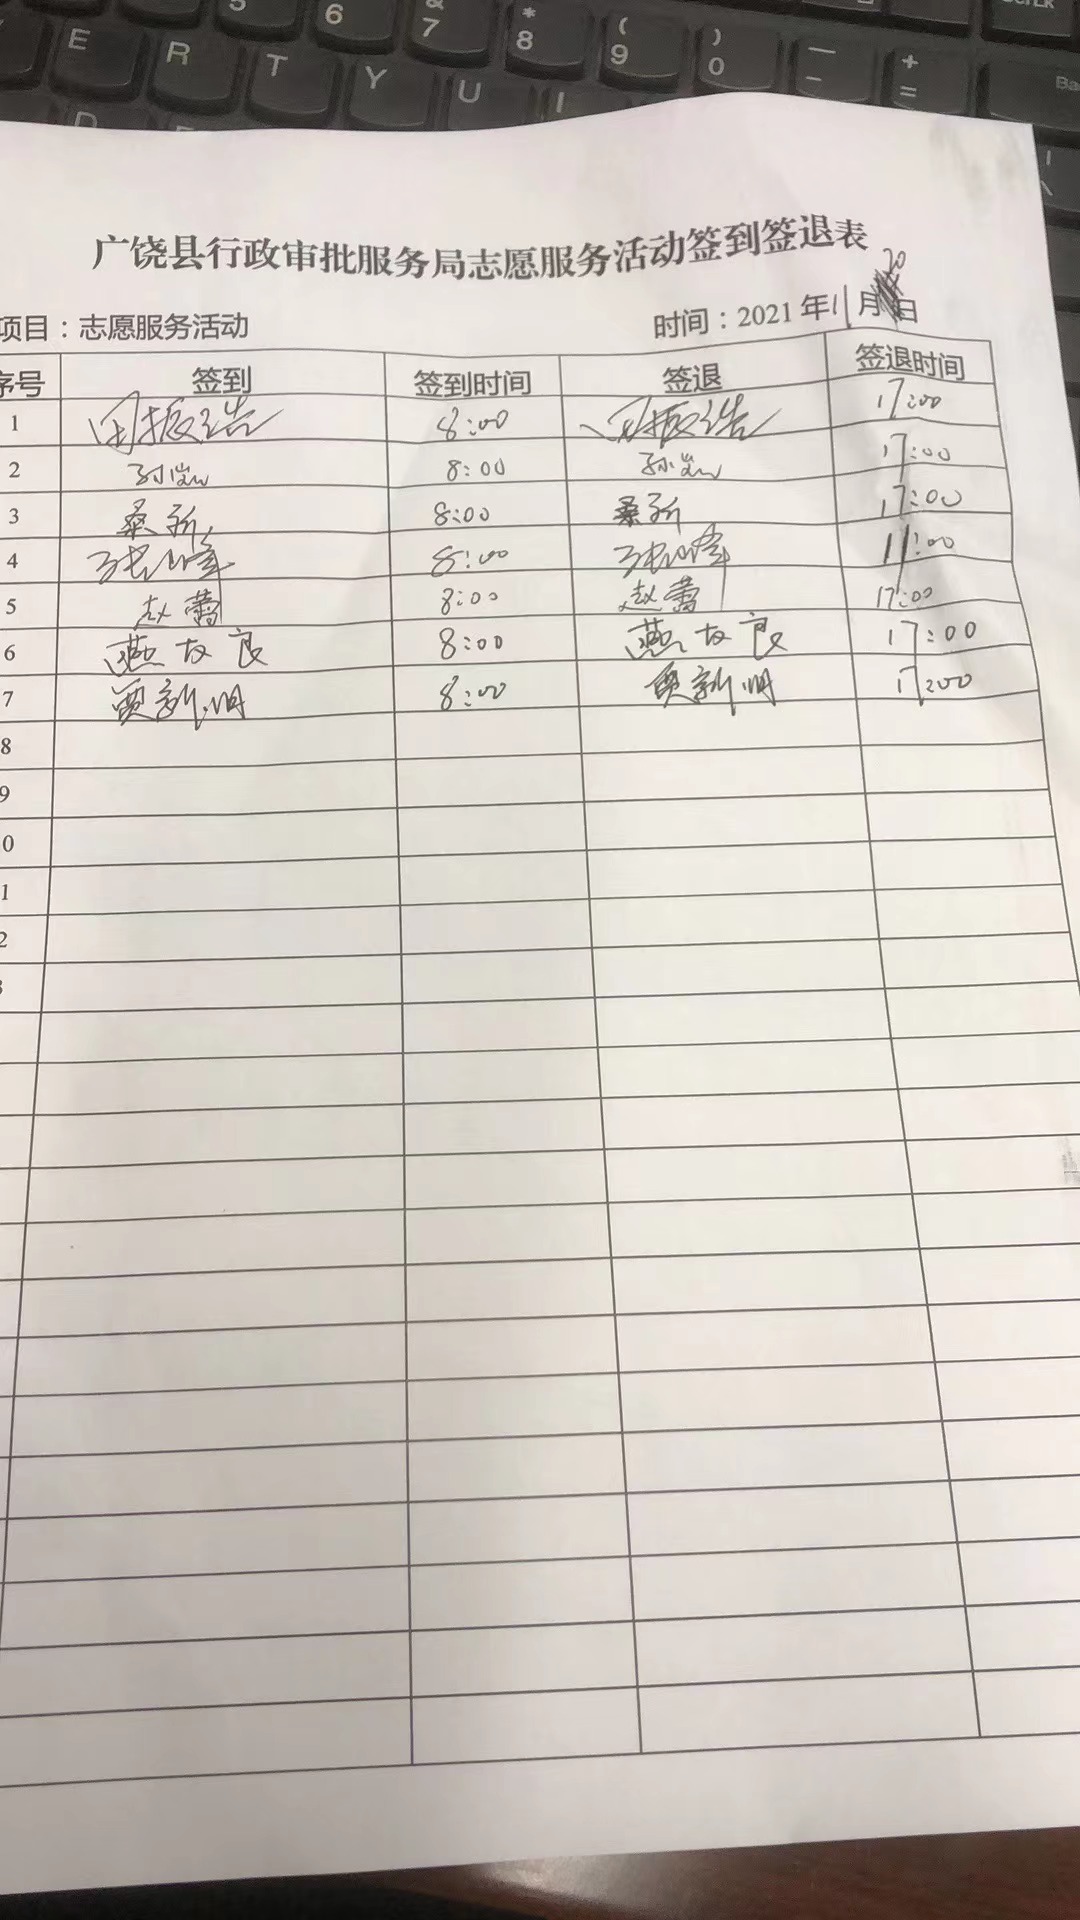 5 6 & 7 * 8 ( 9 ) 0 — - + =
E R T Y U I
广饶县行政审批服务局志愿服务活动签到签退表
项目：志愿服务活动 时间：2021年11月20日
序号 签到 签到时间 签退 签退时间
1 田振浩 8:00 田振浩 17:00
2 8:00 17:00
3 桑新 8:00 桑新 17:00
4 张峰 8:00 张峰 17:00
5 赵蕾 8:00 赵蕾 17:00
6 燕友良 8:00 燕友良 17:00
7 贾新明 8:00 贾新明 17:00
8
9
0
1
2
3